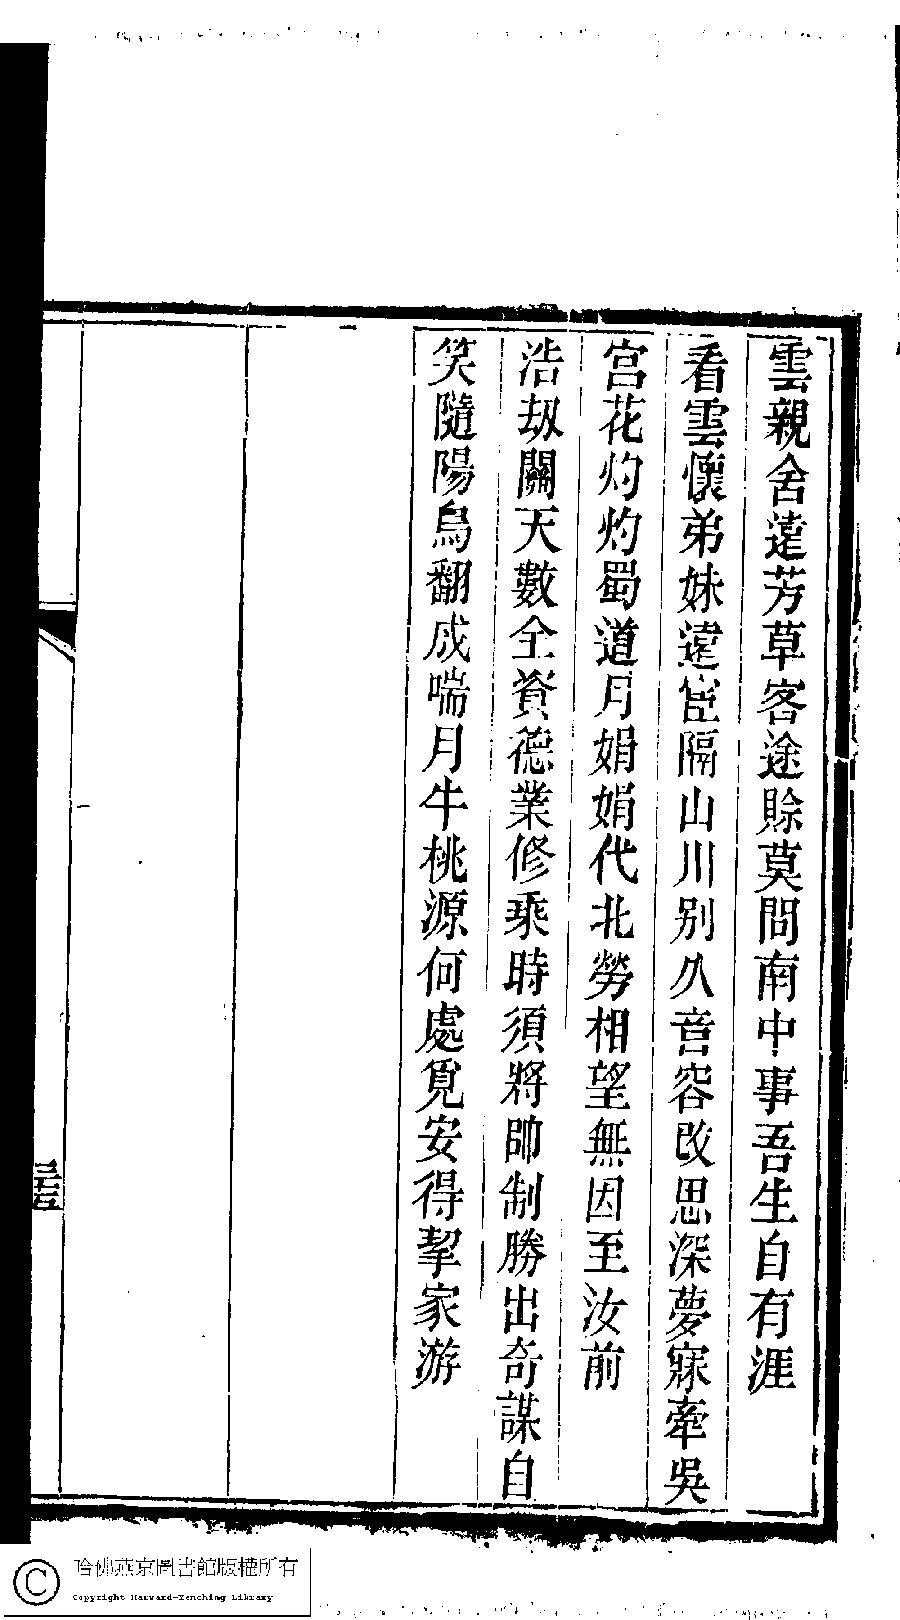 雲親舍遠芳草客途賒莫問南中事吾生自有涯
看雲懷弟妹遠宦隔山川别久音容改思深夢寐牽吳
宫花灼灼蜀道月娟娟代北勞相望無因至汝前
浩刼關天數全資德業修乘時須將帥制勝出奇謀自
笑隨陽鳥翻成喘月牛桃源何處覓安得挈家游
哈佛燕京圖書館版權所有
Copyright Harvard-Yenching Library